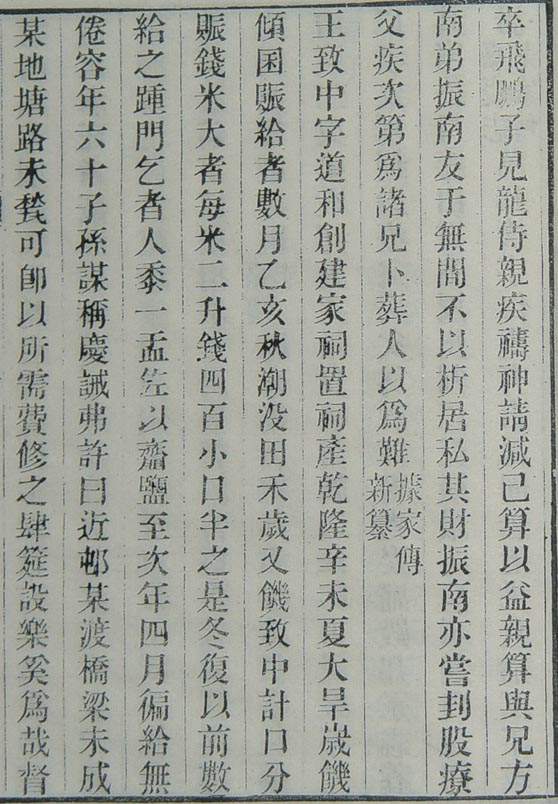 卒飛鵬子見龍侍親疾禱神請減己算以益親算與兄方
南弟振南友于無間不以析居私其財振南亦嘗刲股療
父疾次第為諸兄卜葬人以為難據家傳新纂
王致中字道和創建家祠置祠產乾隆辛未夏大旱歲饑
傾囷賑給者數月乙亥秋潮沒田禾歲又饑致中計口分
賑錢米大者每米二升錢四百小口半之是冬復以前數
給之踵門乞者人黍一盂佐以齏鹽至次年四月徧給無
倦容年六十子孫謀稱慶誡弗許曰近邨某渡橋梁未成
某地塘路未甃可卽以所需費修之肆筵設樂奚為哉督